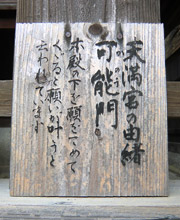 天満宮の由緒
可能門
本殿の下を願をこめて
くぐると願いが叶うと
云われています